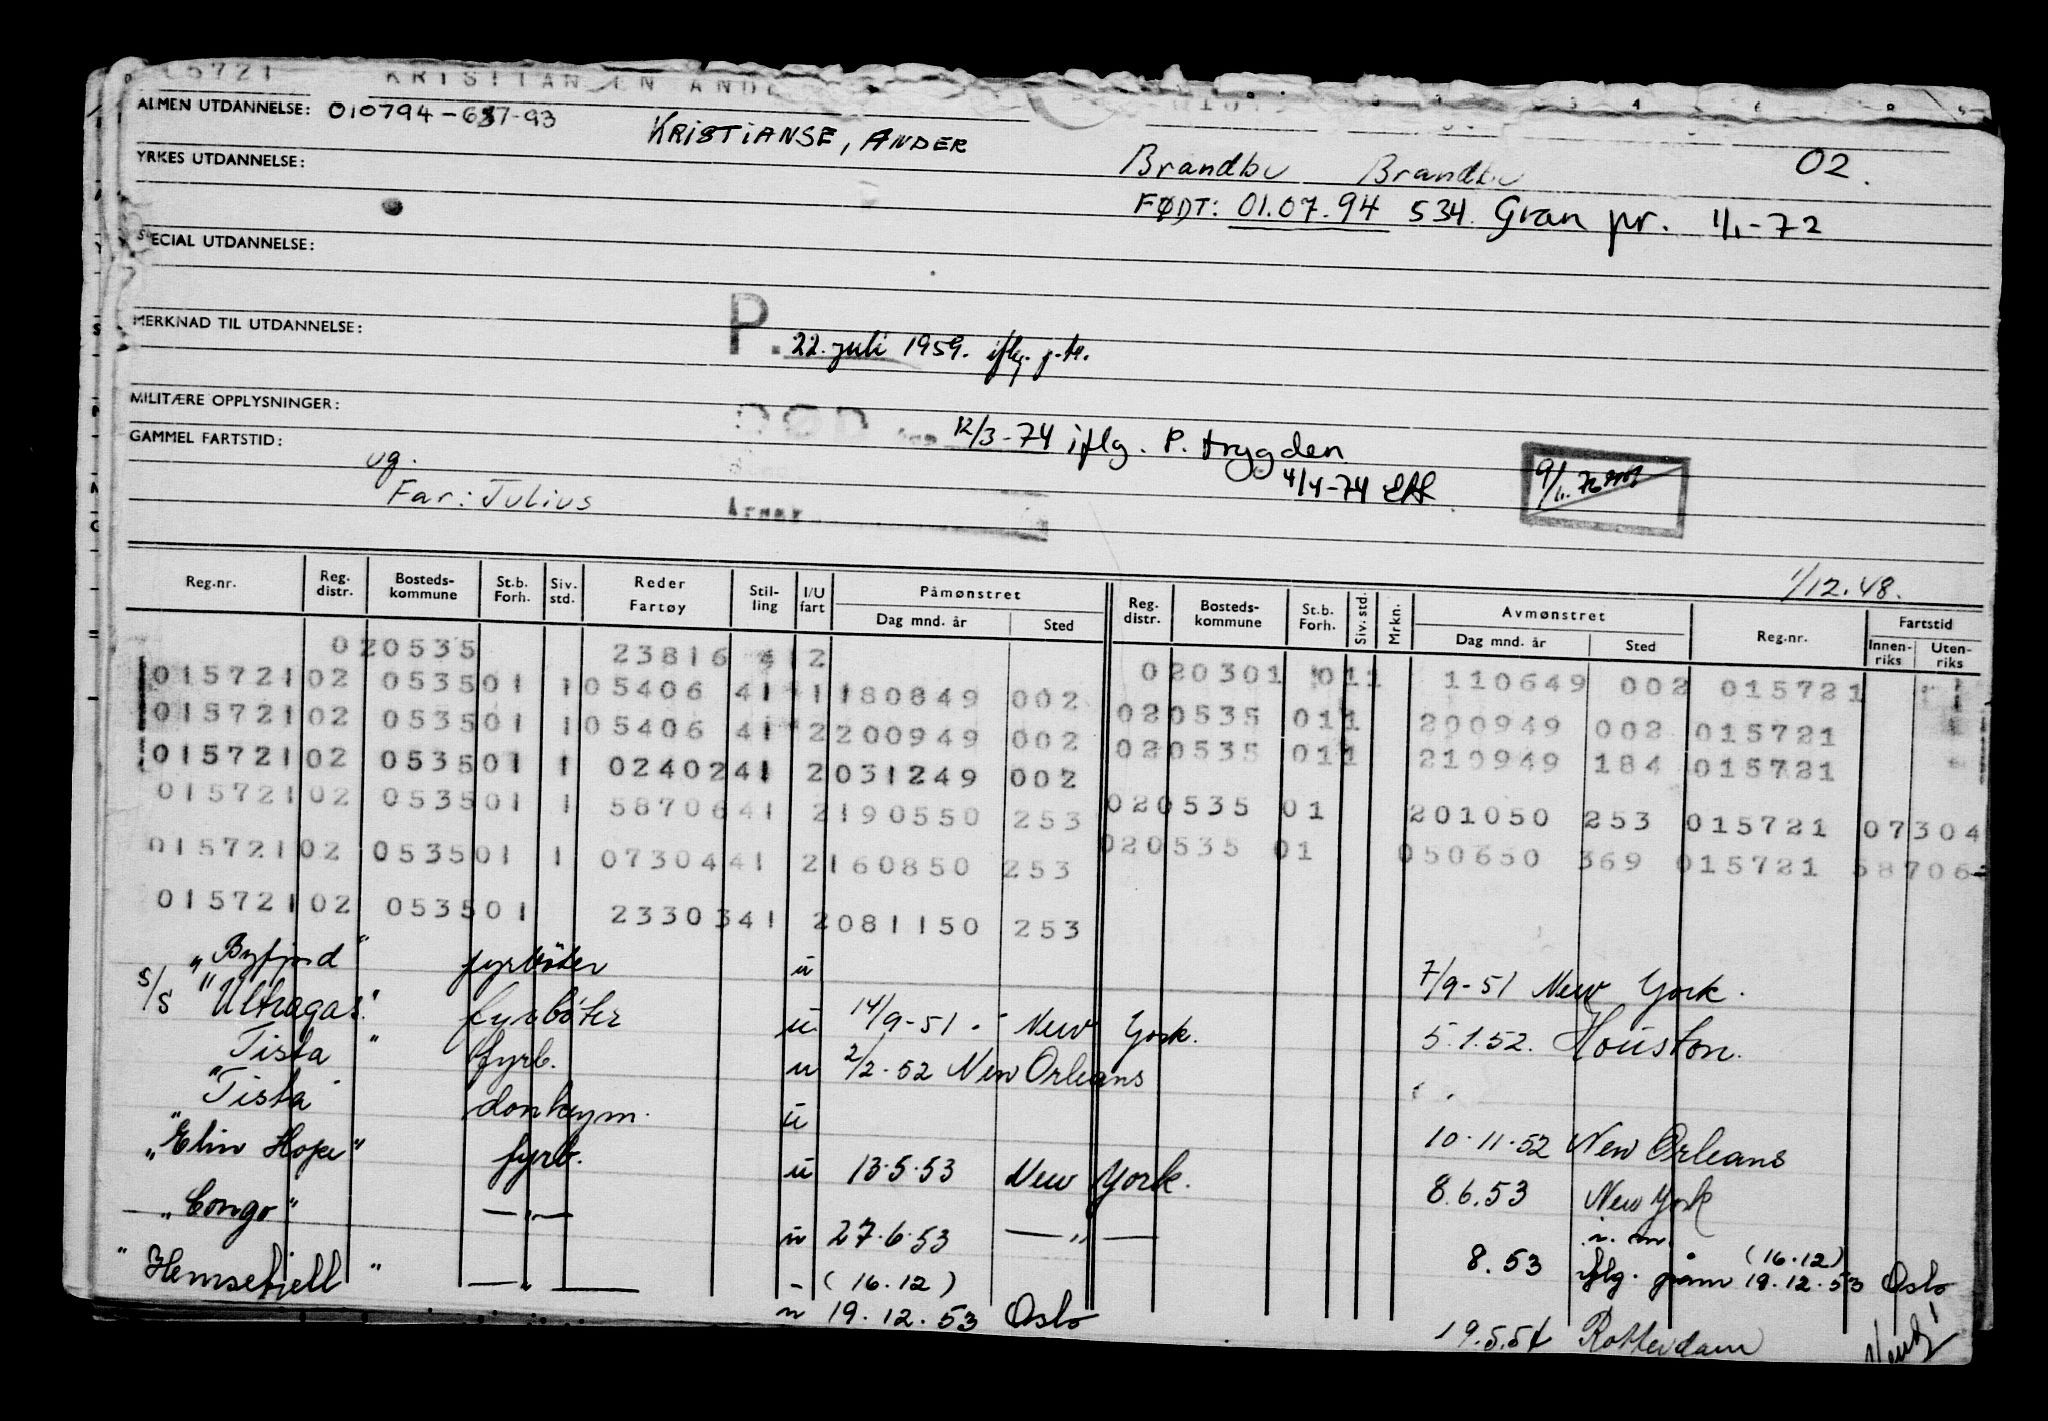 15721 KRISTIAN EN AND
ALMEN UTDANNELSE: 010794-637-93
KRISTIANSE, ANDER
YRKES UTDANNELSE:
Brandbu Brandbu 02.
FØDT: 01.07.94 534 Gran pr. 1/1-72
SPECIAL UTDANNELSE:
MERKNAD TIL UTDANNELSE:
P. 22. juli 1959. iflg. p.tr.
MILITÆRE OPPLYSNINGER:
DØD 12/3-74 iflg. P. trygden
GAMMEL FARTSTID:
ug. 4/4-74
Far: Julius
1/12.48.
Reg.nr. Reg. distr. Bosteds-kommune St.b. Forh. Siv. std. Reder Fartøy Stil-ling I/U fart Påmønstret Dag mnd. år Sted Reg. distr. Bosteds-kommune St.b. Forh. Siv. std. Mrkn. Avmønstret Dag mnd. år Sted Reg.nr. Fartstid Innen-riks Uten-riks
020535 23816 412 020301 011 110649 002 015721
015721 02 053501 1 05406 41 1 180849 002 020535 011 200949 002 015721
015721 02 053501 1 05406 41 2 200949 002 020535 011 210949 184 015721
015721 02 053501 1 02402 41 2 031249 002
015721 02 053501 1 58706 41 2 190550 253 020535 01 201050 253 015721 07304
015721 02 053501 1 07304 41 2 160850 253 020535 01 050650 369 015721 58706
015721 02 053501 23303 41 2 081150 253
"Byfjord" fyrböter u 7/9-51 New York.
S/S "Ultragas" fyrböter u 14/9-51 New York. 5.1.52. Houston.
Tista " fyrb. u 2/2-52 New Orleans
"Tista" donkeym. u 10.11.52 New Orleans
"Elin Hope" fyrb. u 13.5.53 New York. 8.6.53 New York
"Congo" —"— u 27.6.53 —"— 8.53 iflg. påm (16.12) 19.12.53 Oslo
"Hemsefjell" —"— - (16.12)
u 19.12.53 Oslo 19.5.54 Rotterdam